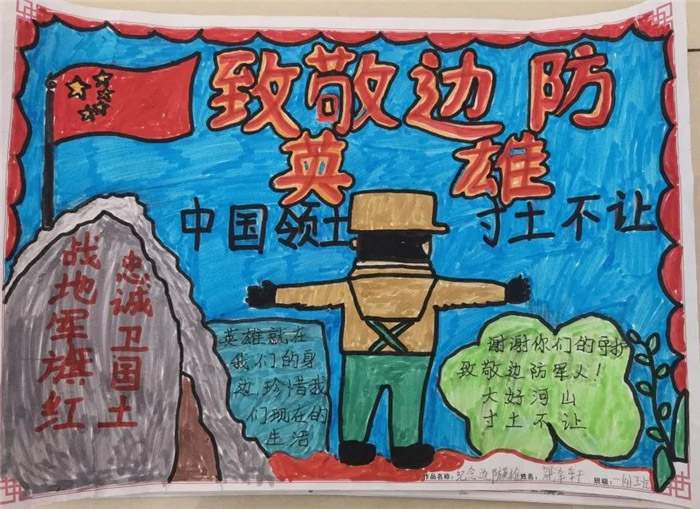 致敬边防
英雄
中国领土 寸土不让
忠诚卫国土
战地军旗红
英雄就在
我们的身
边,珍惜我
们现在的
生活
谢谢你们的守护
致敬边防军人!
大好河山
寸土不让
作品名称: 纪念边防英雄 姓名: 班级: